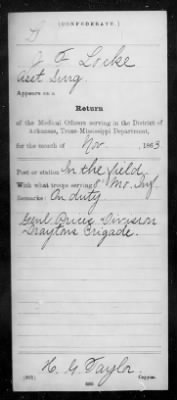 (CONFEDERATE.)
J. F. Locke
Asst Surg.
Appears on a
Return
of the Medical Officers serving in the District of
Arkansas, Trans-Mississippi Department,
for the month of Nov, 1863
Post or station In the field
With what troops serving Mo. Inf.
Remarks: On duty
Genl Prices Division
Draytons Brigade.
H. G. Taylor
Copyist.